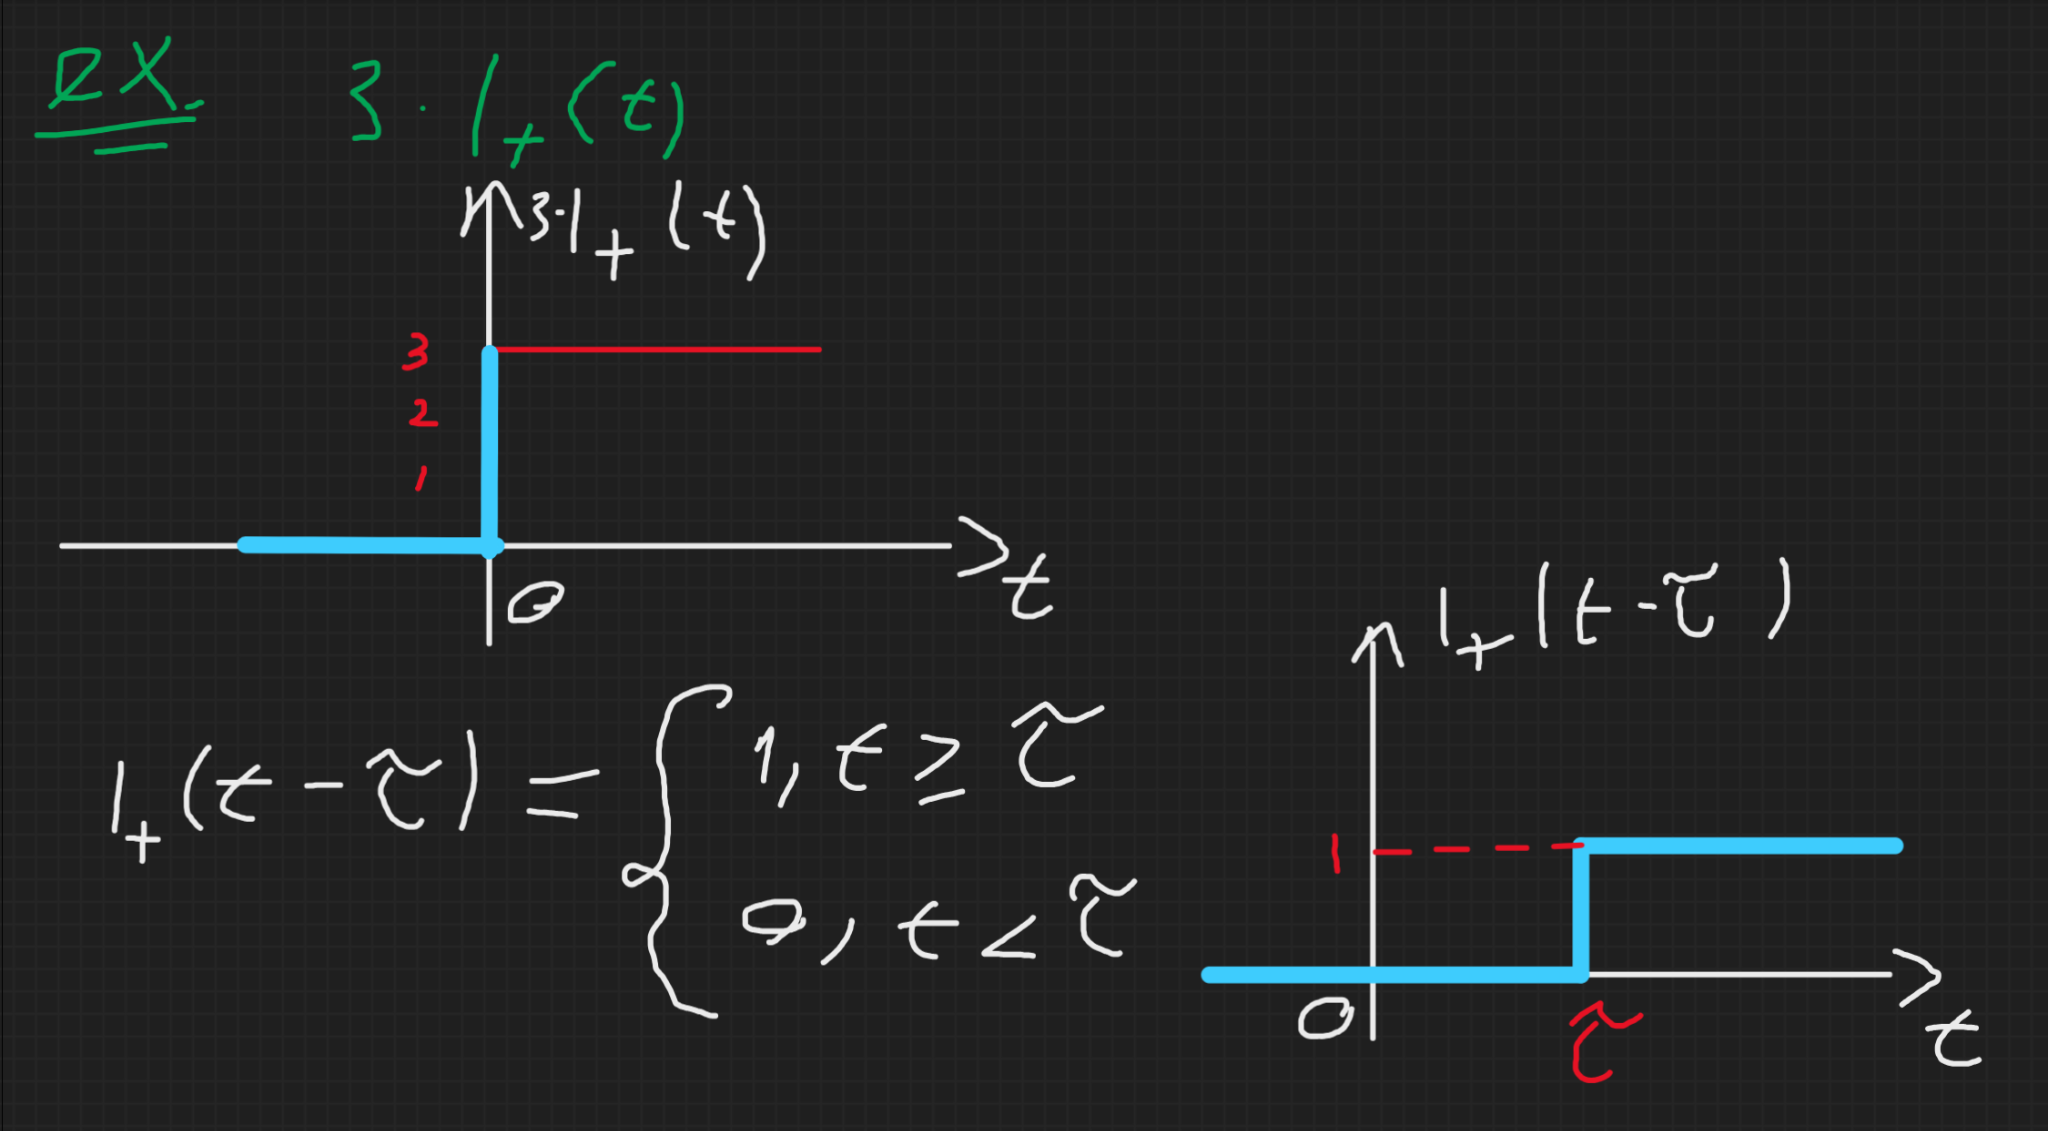 EX. 3·1₊(t)
3·1₊(t)
3
2
1
0
t
1₊(t-τ)
1₊(t-τ) = { 1, t ≥ τ
0, t < τ
1
0
τ
t